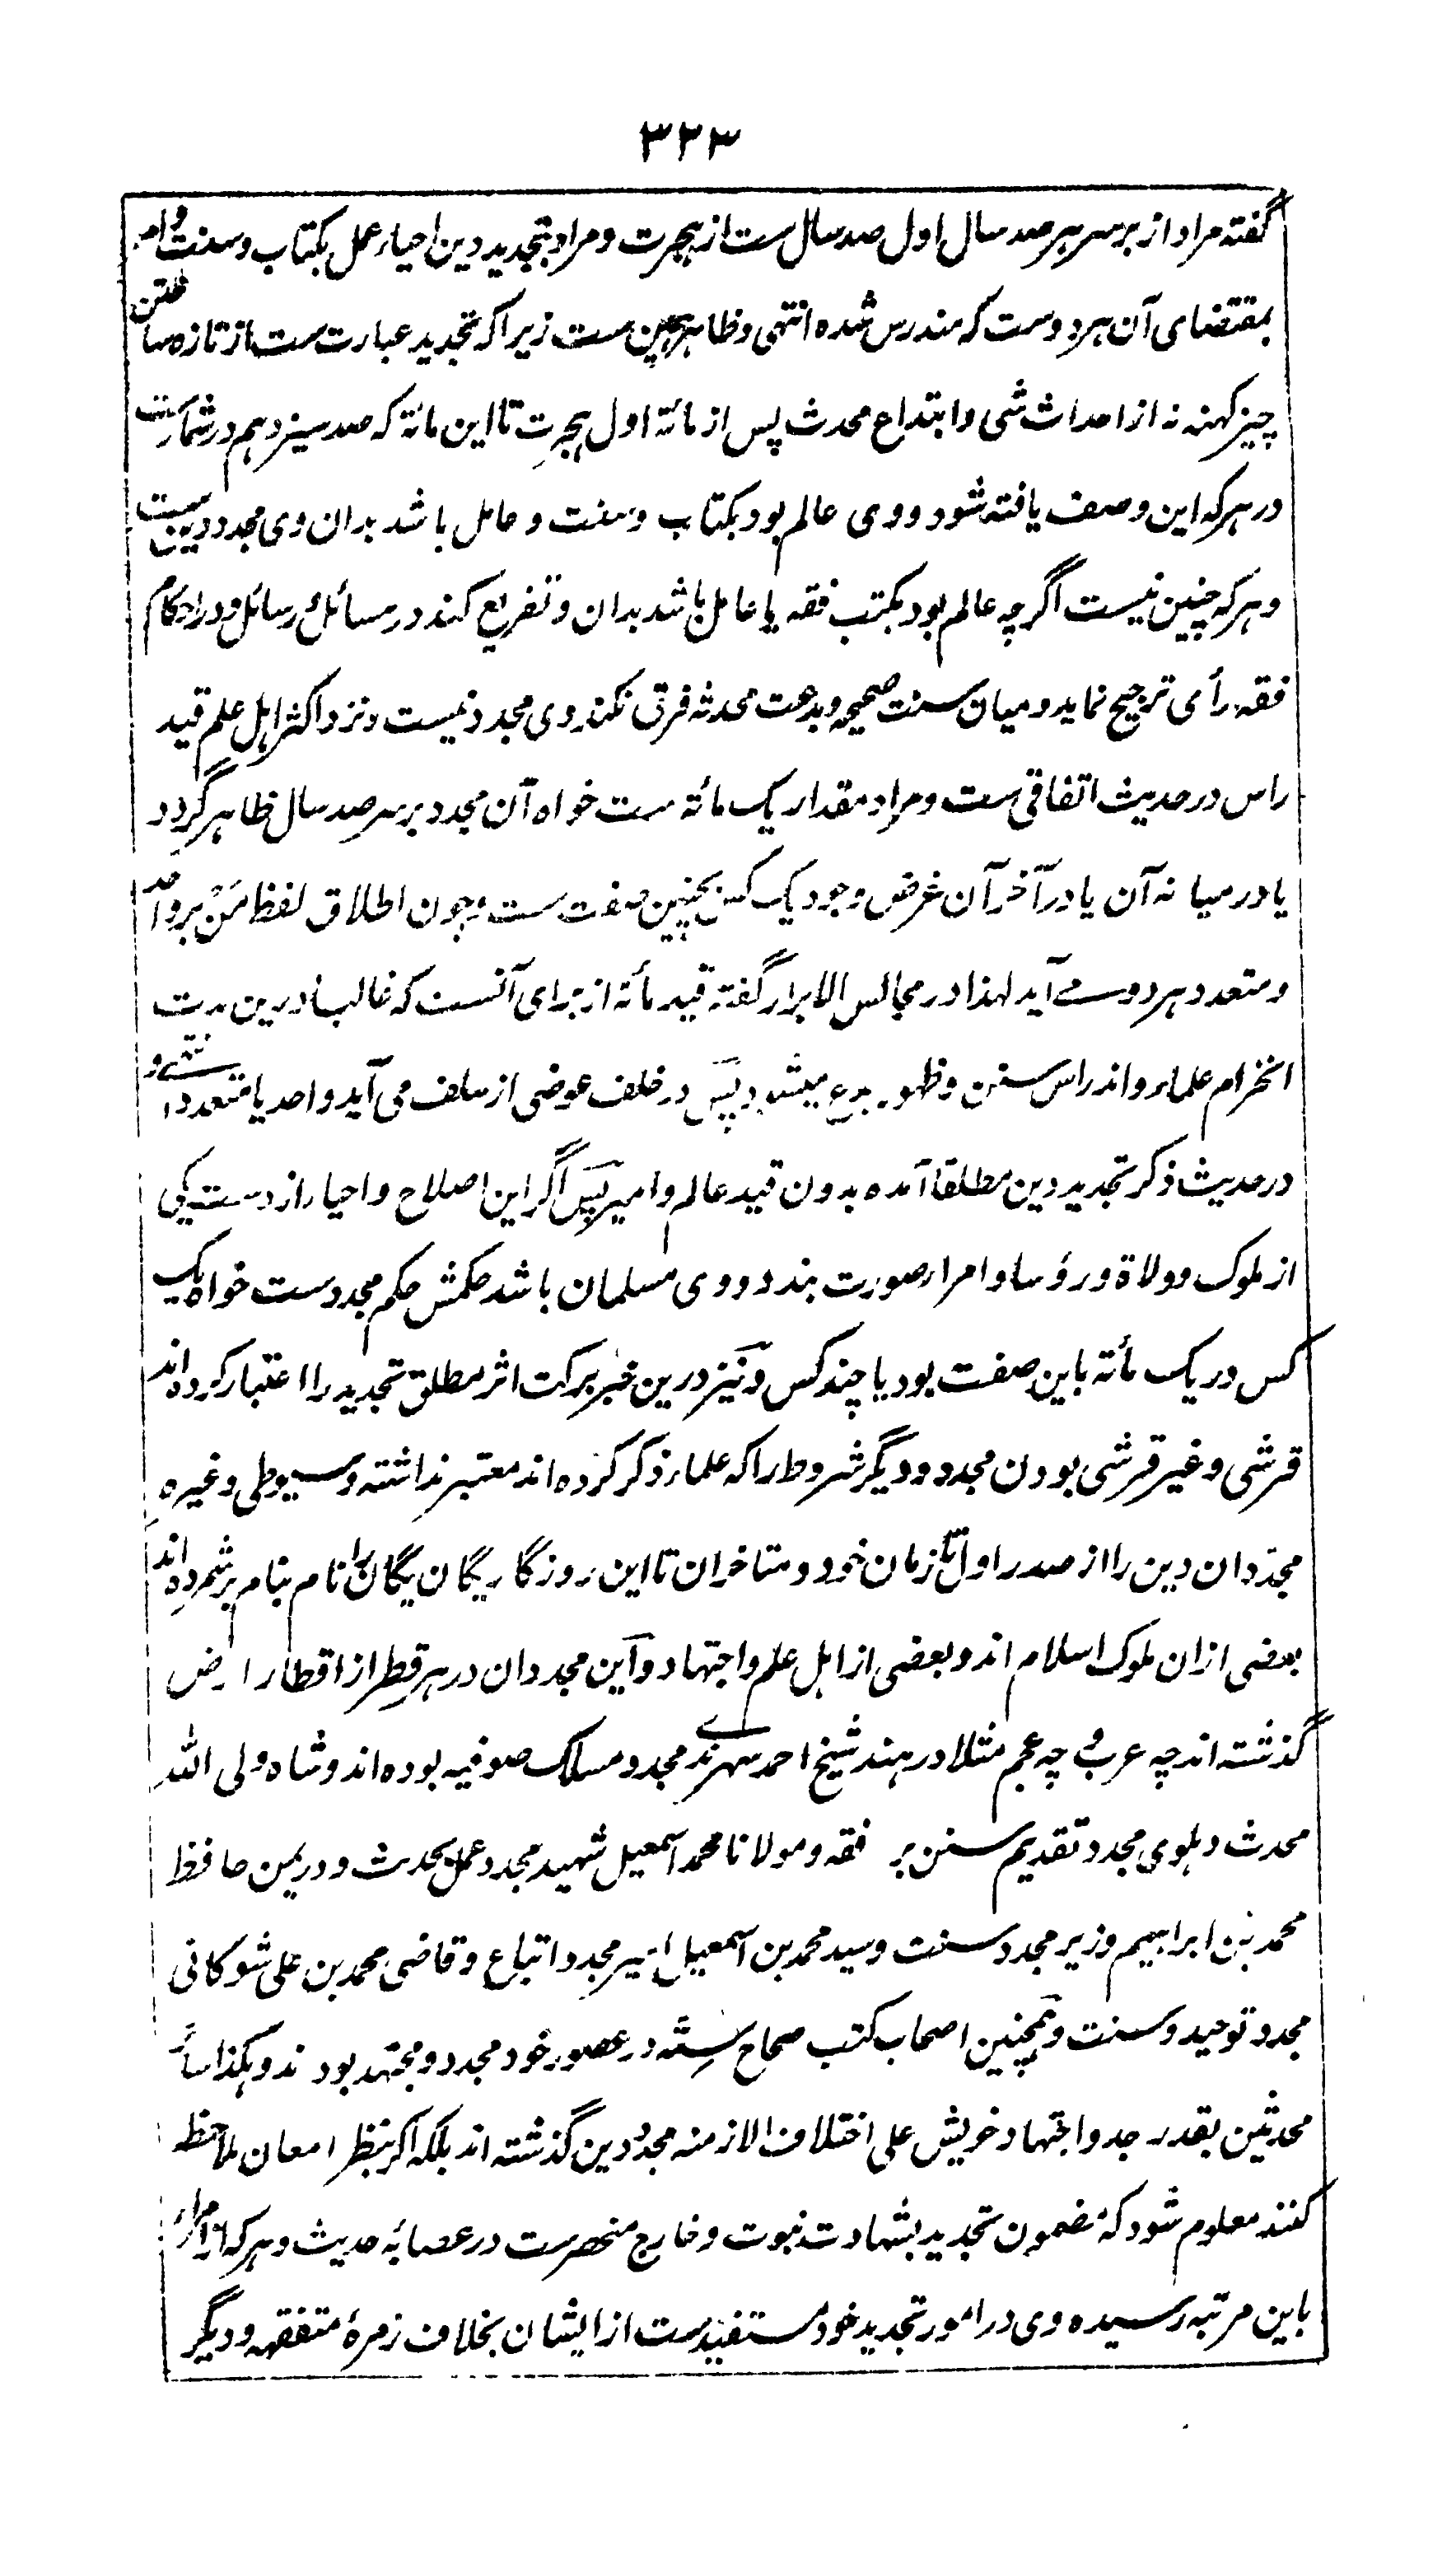 ۳۲۳
گفته مراد از بر سر هر صد سال اول صد سال ست از هجرت و مراد بتجدید دین احیاء عمل بکتاب و سنت و امر
بمقتضای آن هر دو ست که مندرس شده انتهی و ظاهر همچنین ست زیرا که تجدید عبارت ست از تازه ساختن
چیز کهنه نه از احداث شی و ابتداع محدث پس از مائة اول هجرت تا این مائة که صد سیزدهم در شمارست
در هر که این وصف یافته شود و وی عالم بود بکتاب و سنت و عامل باشد بدان وی مجدد دین ست
و هر که چنین نیست اگرچه عالم بود بکتب فقه یا عامل باشد بدان و تفریع کند در مسائل و رسائل و در احکام
فقه رأی ترجیح نماید و میان سنت صحیحه و بدعت محدثه فرق نکند وی مجدد نیست و نزد اکثر اهل علم قید
راس در حدیث اتفاقی ست و مراد مقدار یک مائة ست خواه آن مجدد بر سر صد سال ظاهر گردد
یا در میانه آن یا در آخر آن غرض وجود یک کس بچنین صفت ست و چون اطلاق لفظ مَنْ بر واحد
و متعدد هر دو می آید لهذا در مجالس الابرار گفته قید مائة از برای آنست که غالبا درین مدت
انخرام علماء و اندراس سنن و ظهور بدع میشود پس در خلف عوضی از سلف می آید واحد یا متعدد انتهی و
در حدیث ذکر تجدید دین مطلقا آمده بدون قید عالم و امیر پس اگر این اصلاح و احیاء از دست یکی
از ملوک و ولاة و رؤسا و امراء صورت بندد و وی مسلمان باشد حکمش حکم مجدد ست خواه یک
کس در یک مائة باین صفت بود یا چند کس و نیز درین خبر برکت اثر مطلق تجدید را اعتبار کرده اند
قرشی و غیر قرشی بودن مجدد و دیگر شروط را که علماء ذکر کرده اند معتبر نداشته و سیوطی و غیره
مجدّدان دین را از صدر اول تا زمان خود و متاخران تا این روزگار یگان یگان را نام بنام بر شمرده اند
بعضی ازان ملوک اسلام اند و بعضی از اهل علم و اجتهاد و این مجددان در هر قطر از اقطار ارض
گذشته اند چه عرب و چه عجم مثلا در هند شیخ احمد سهرندی مجدد مسلک صوفیه بوده اند و شاه ولی الله
محدث دهلوی مجدد تقدیم سنن بر فقه و مولانا محمد اسمعیل شهید مجدد عمل بحدیث و در یمن حافظ
محمد بن ابراهیم وزیر مجدد سنت و سید محمد بن اسمعیل امیر مجدد اتباع و قاضی محمد بن علی شوکانی
مجدد توحید و سنت و همچنین اصحاب کتب صحاح ستّه در عصور خود مجدد و مجتهد بودند و هکذا سائر
محدثین بقدر جد و اجتهاد خویش علی اختلاف الازمنه مجدّد دین گذشته اند بلکه اگر بنظر امعان ملاحظه
کنند معلوم شود که مضمون تجدید بشهادت نبوت و خارج منحصرست در عصابۀ حدیث و هر که از امراء
باین مرتبه رسیده وی در امور تجدید خود مستفیدست از ایشان بخلاف زمرۀ متفقهه و دیگر